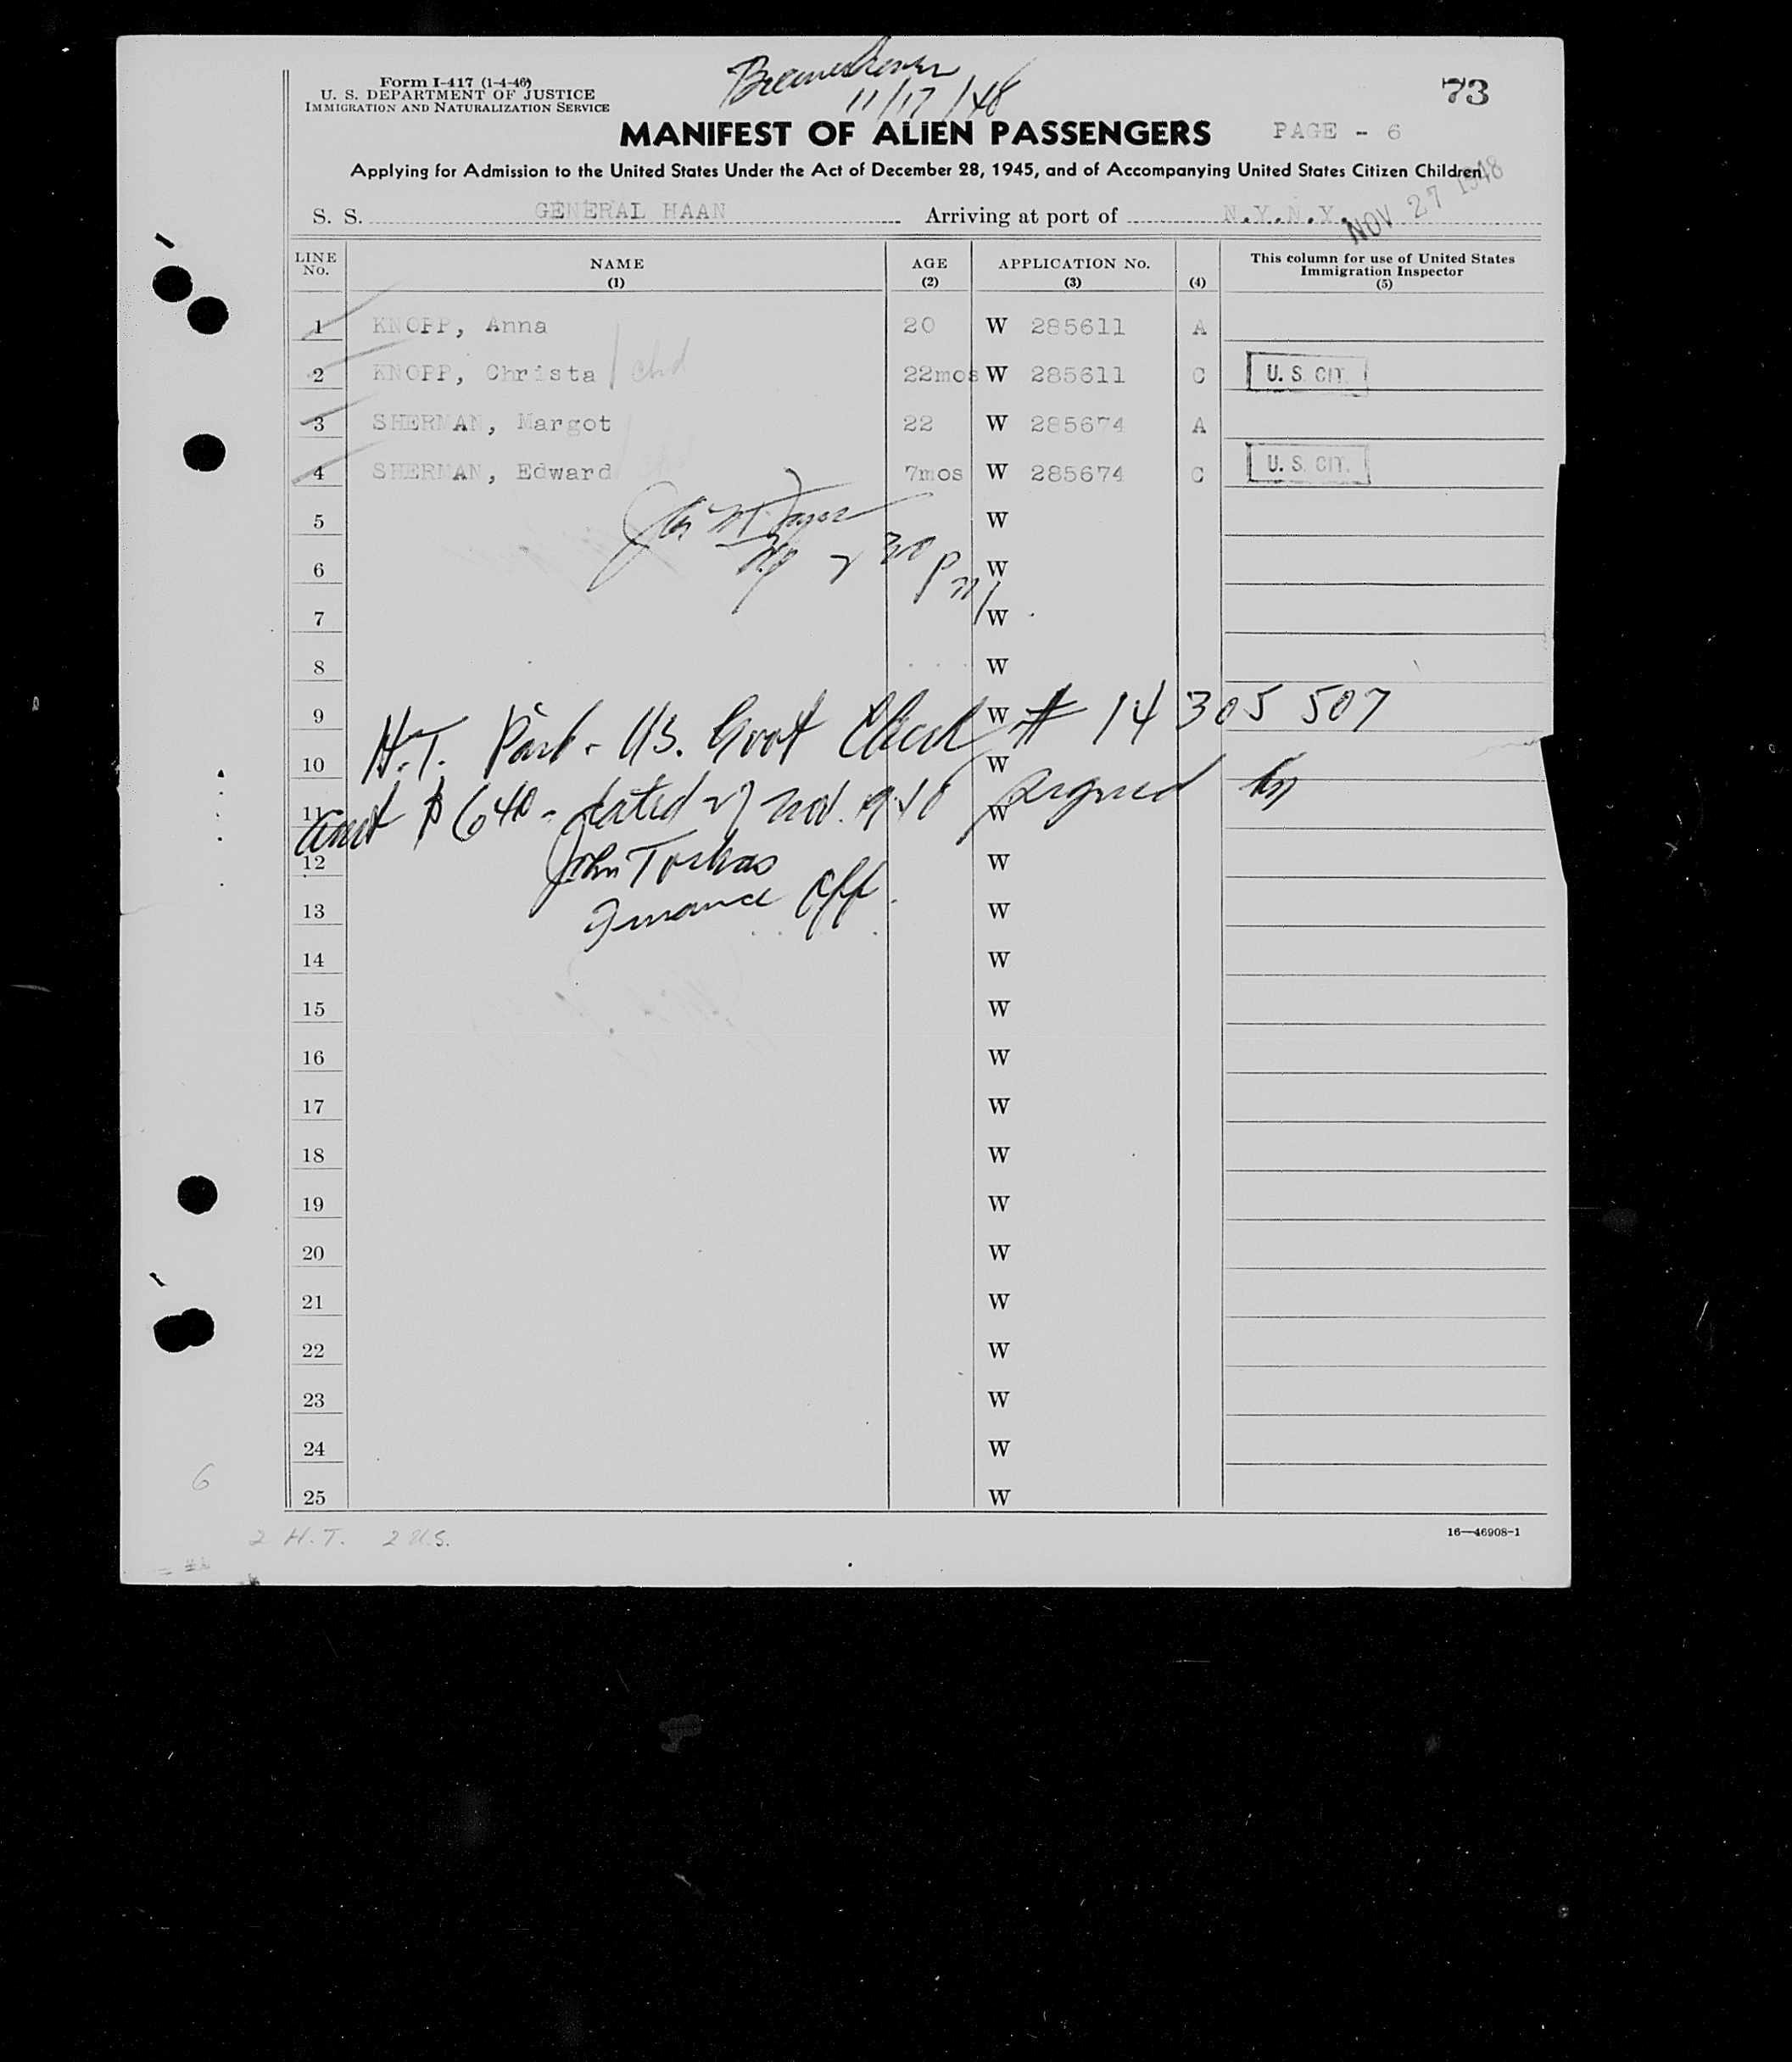 Form I-417 (1-4-46)
U. S. DEPARTMENT OF JUSTICE
IMMIGRATION AND NATURALIZATION SERVICE
Bremerhaven
11/17/48
73
MANIFEST OF ALIEN PASSENGERS
PAGE - 6
Applying for Admission to the United States Under the Act of December 28, 1945, and of Accompanying United States Citizen Children
S. S. GENERAL HAAN Arriving at port of N.Y.N.Y. NOV 27 1948
LINE No. NAME (1) AGE (2) APPLICATION No. (3) (4) This column for use of United States Immigration Inspector (5)
1 KNOPP, Anna 20 W 285611 A
2 KNOPP, Christa / chd 22mos W 285611 C U. S. CIT.
3 SHERMAN, Margot 22 W 285674 A
4 SHERMAN, Edward / chd 7mos W 285674 C U. S. CIT.
5 W
6 W
7 W
8 W
9 W
H.T. Paid - US. Govt Check # 14 305 507
10 W
amt $ 640 - dated 27 Nov. 1948 signed by
11 W
John
12 W
Finance Off.
13 W
14 W
15 W
16 W
17 W
18 W
19 W
20 W
21 W
22 W
23 W
24 W
25 W
6
2 H.T. 2 U.S.
16—46908-1